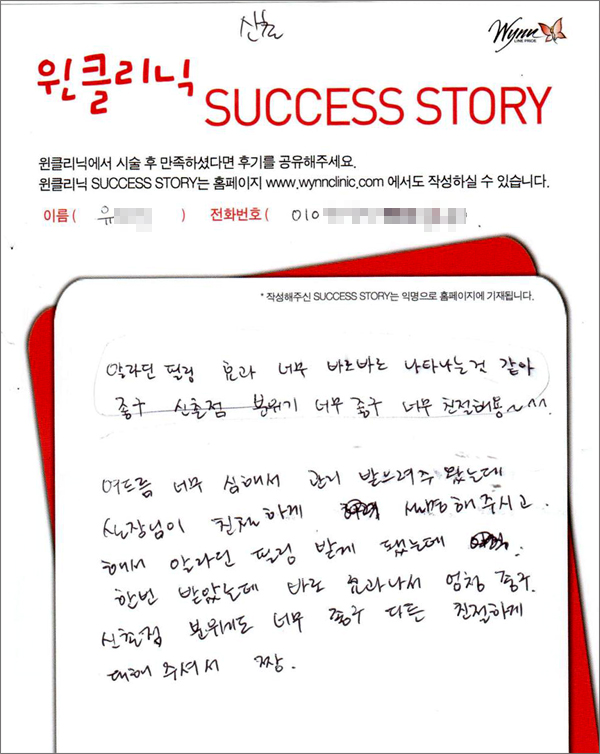 신촌
Wynn
LINE PRIDE
윈클리닉
SUCCESS STORY
윈클리닉에서 시술 후 만족하셨다면 후기를 공유해주세요.
윈클리닉 SUCCESS STORY는 홈페이지 www.wynnclinic.com 에서도 작성하실 수 있습니다.
이름 ( 유 ) 전화번호 ( 010 )
* 작성해주신 SUCCESS STORY는 익명으로 홈페이지에 기재됩니다.
알라딘 필링 효과 너무 바로바로 나타나는것 같아
좋구 신촌점 분위기 너무 좋구 너무 친절해용~^^
여드름 너무 심해서 관리 받으려구 왔는데
실장님이 친절하게 설명해주시고
해서 알라딘 필링 받게 됐는데
한번 받았는데 바로 효과나서 엄청 좋구
신촌점 분위기도 너무 좋구 다들 친절하게
대해 주셔서 짱.